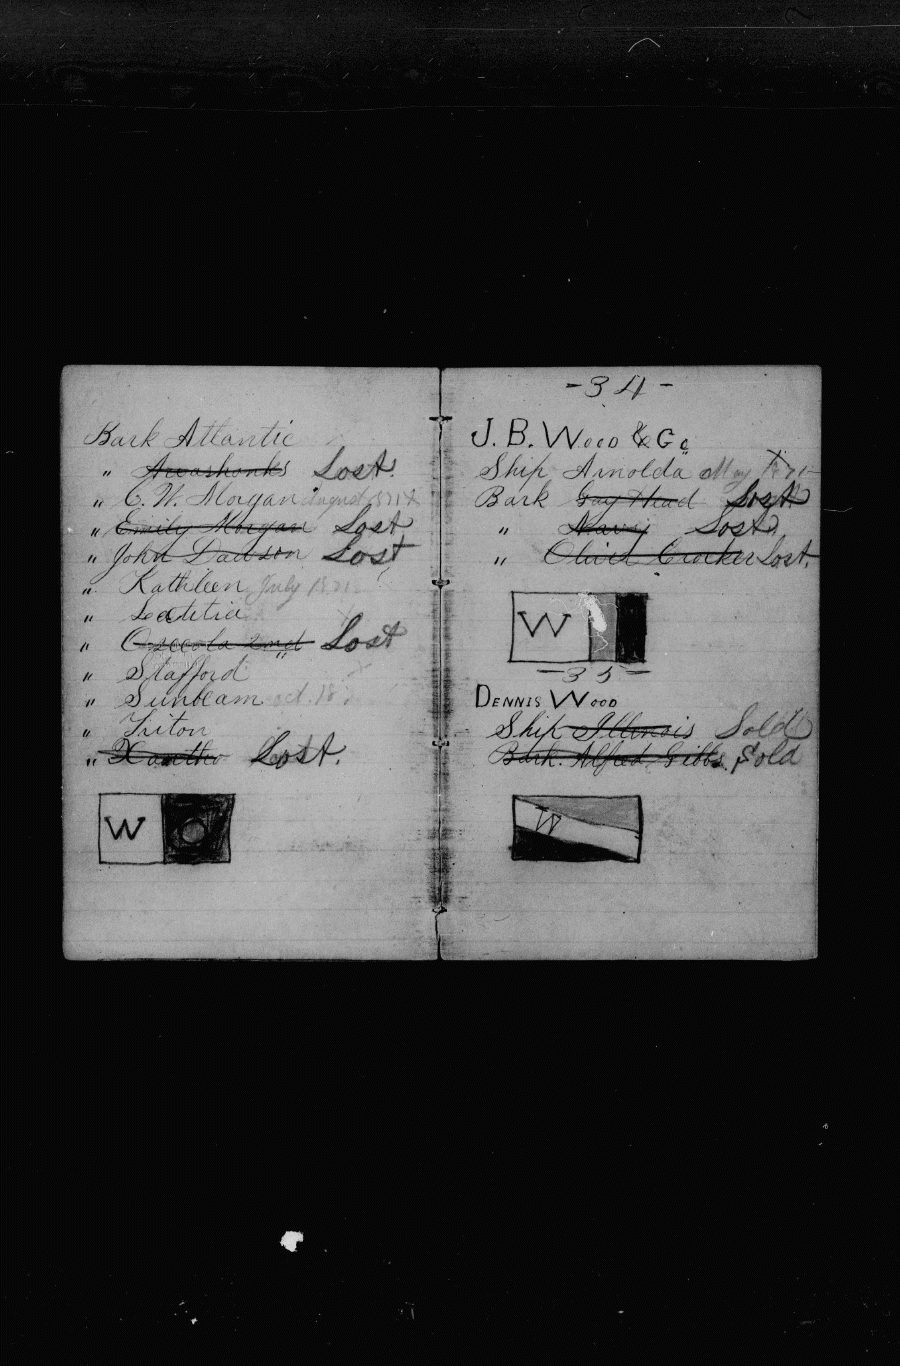 Bark Atlantic
" Awashonks Lost.
" C. W. Morgan August 1871 X
" Emily Morgan Lost
" John Dawson Lost
" Kathleen July 1871
" Laetitia
" Osceola 2nd Lost
" Stafford
" Sunbeam oct. 18
" Triton
" Xantho Lost.
W
- 34 -
J. B. Wood & Co
Ship Arnolda May
Bark Gay Head Lost
" Navy Lost
" Oliver Crocker Lost.
W
- 35 -
Dennis Wood
Ship Illinois Sold
Bark Alfred Gibbs. Sold
W